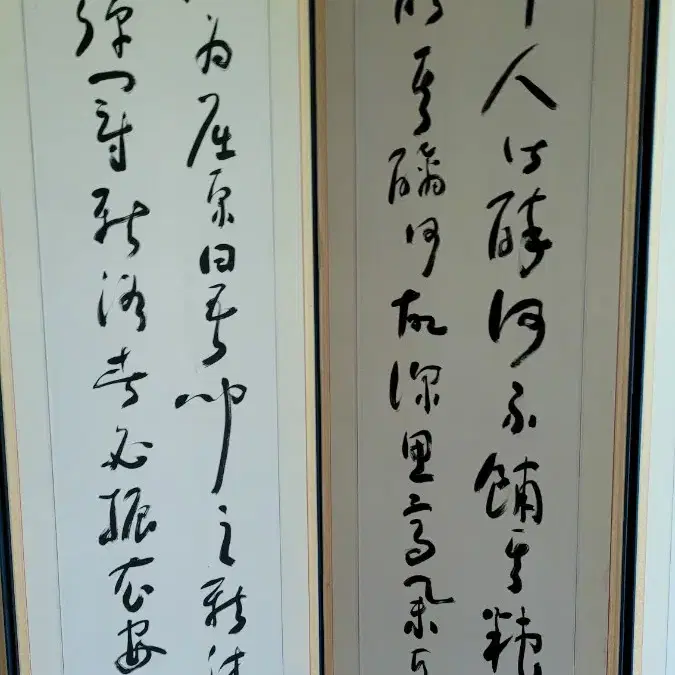 人皆醉何不餔其糟
其醨何故深思高擧
為屈原曰吾聞之新沐
彈冠新浴者必振衣安